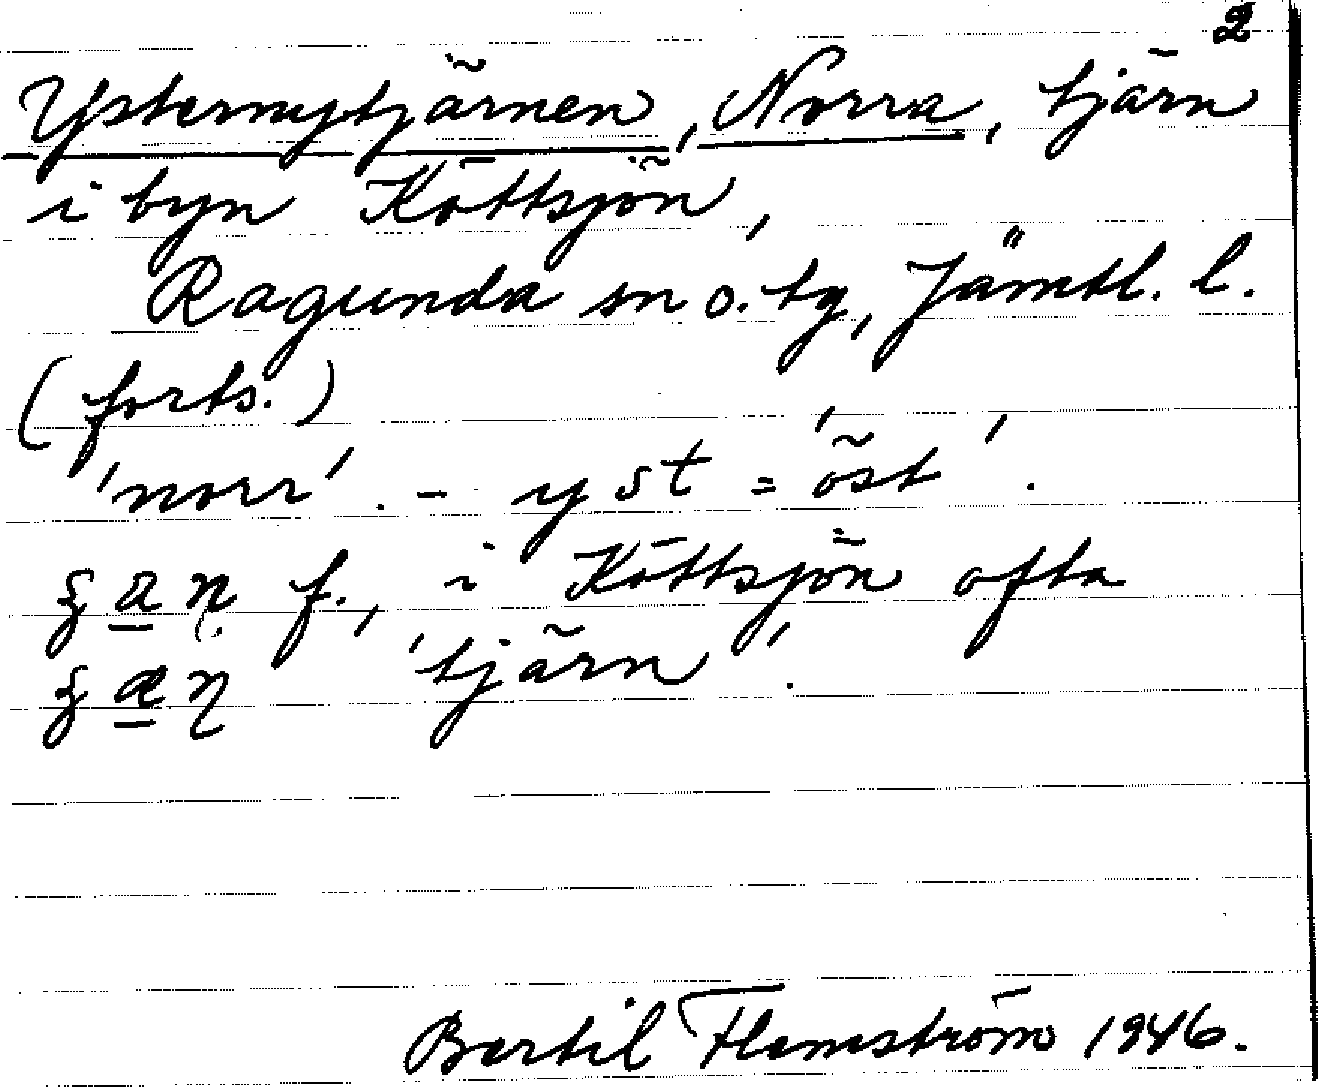 2
Ysternytjärnen, Norra, tjärn
i byn Köttsjön,
Ragunda sn o. tg, Jämtl. l.
(forts.)
'norr'. - yst = 'öst'.
f., i Köttsjön ofta
'tjärn'.
Bertil Flemström 1946.